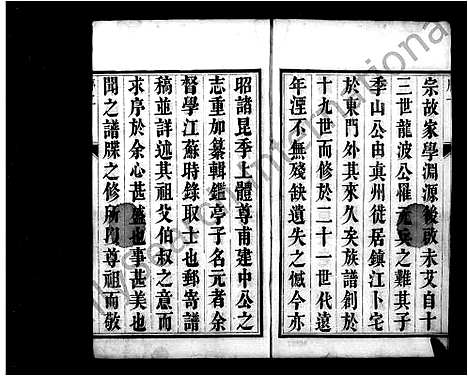 宗故家學淵源後啟未艾自十
三世龍波公罹之難其子
季山公由真州徙居鎮江卜宅
於東門外其來久矣族譜創於
十九世而修於二十一世代遠
年湮不無殘缺遺失之憾今亦
昭諸昆季上體尊甫建中公之
志重加纂輯鑑亭子名元者余
督學江蘇時錄取士也郵寄譜
稿並詳述其祖父伯叔之意而
求序於余心甚盛也事甚美也
聞之譜牒之修所以尊祖而敬